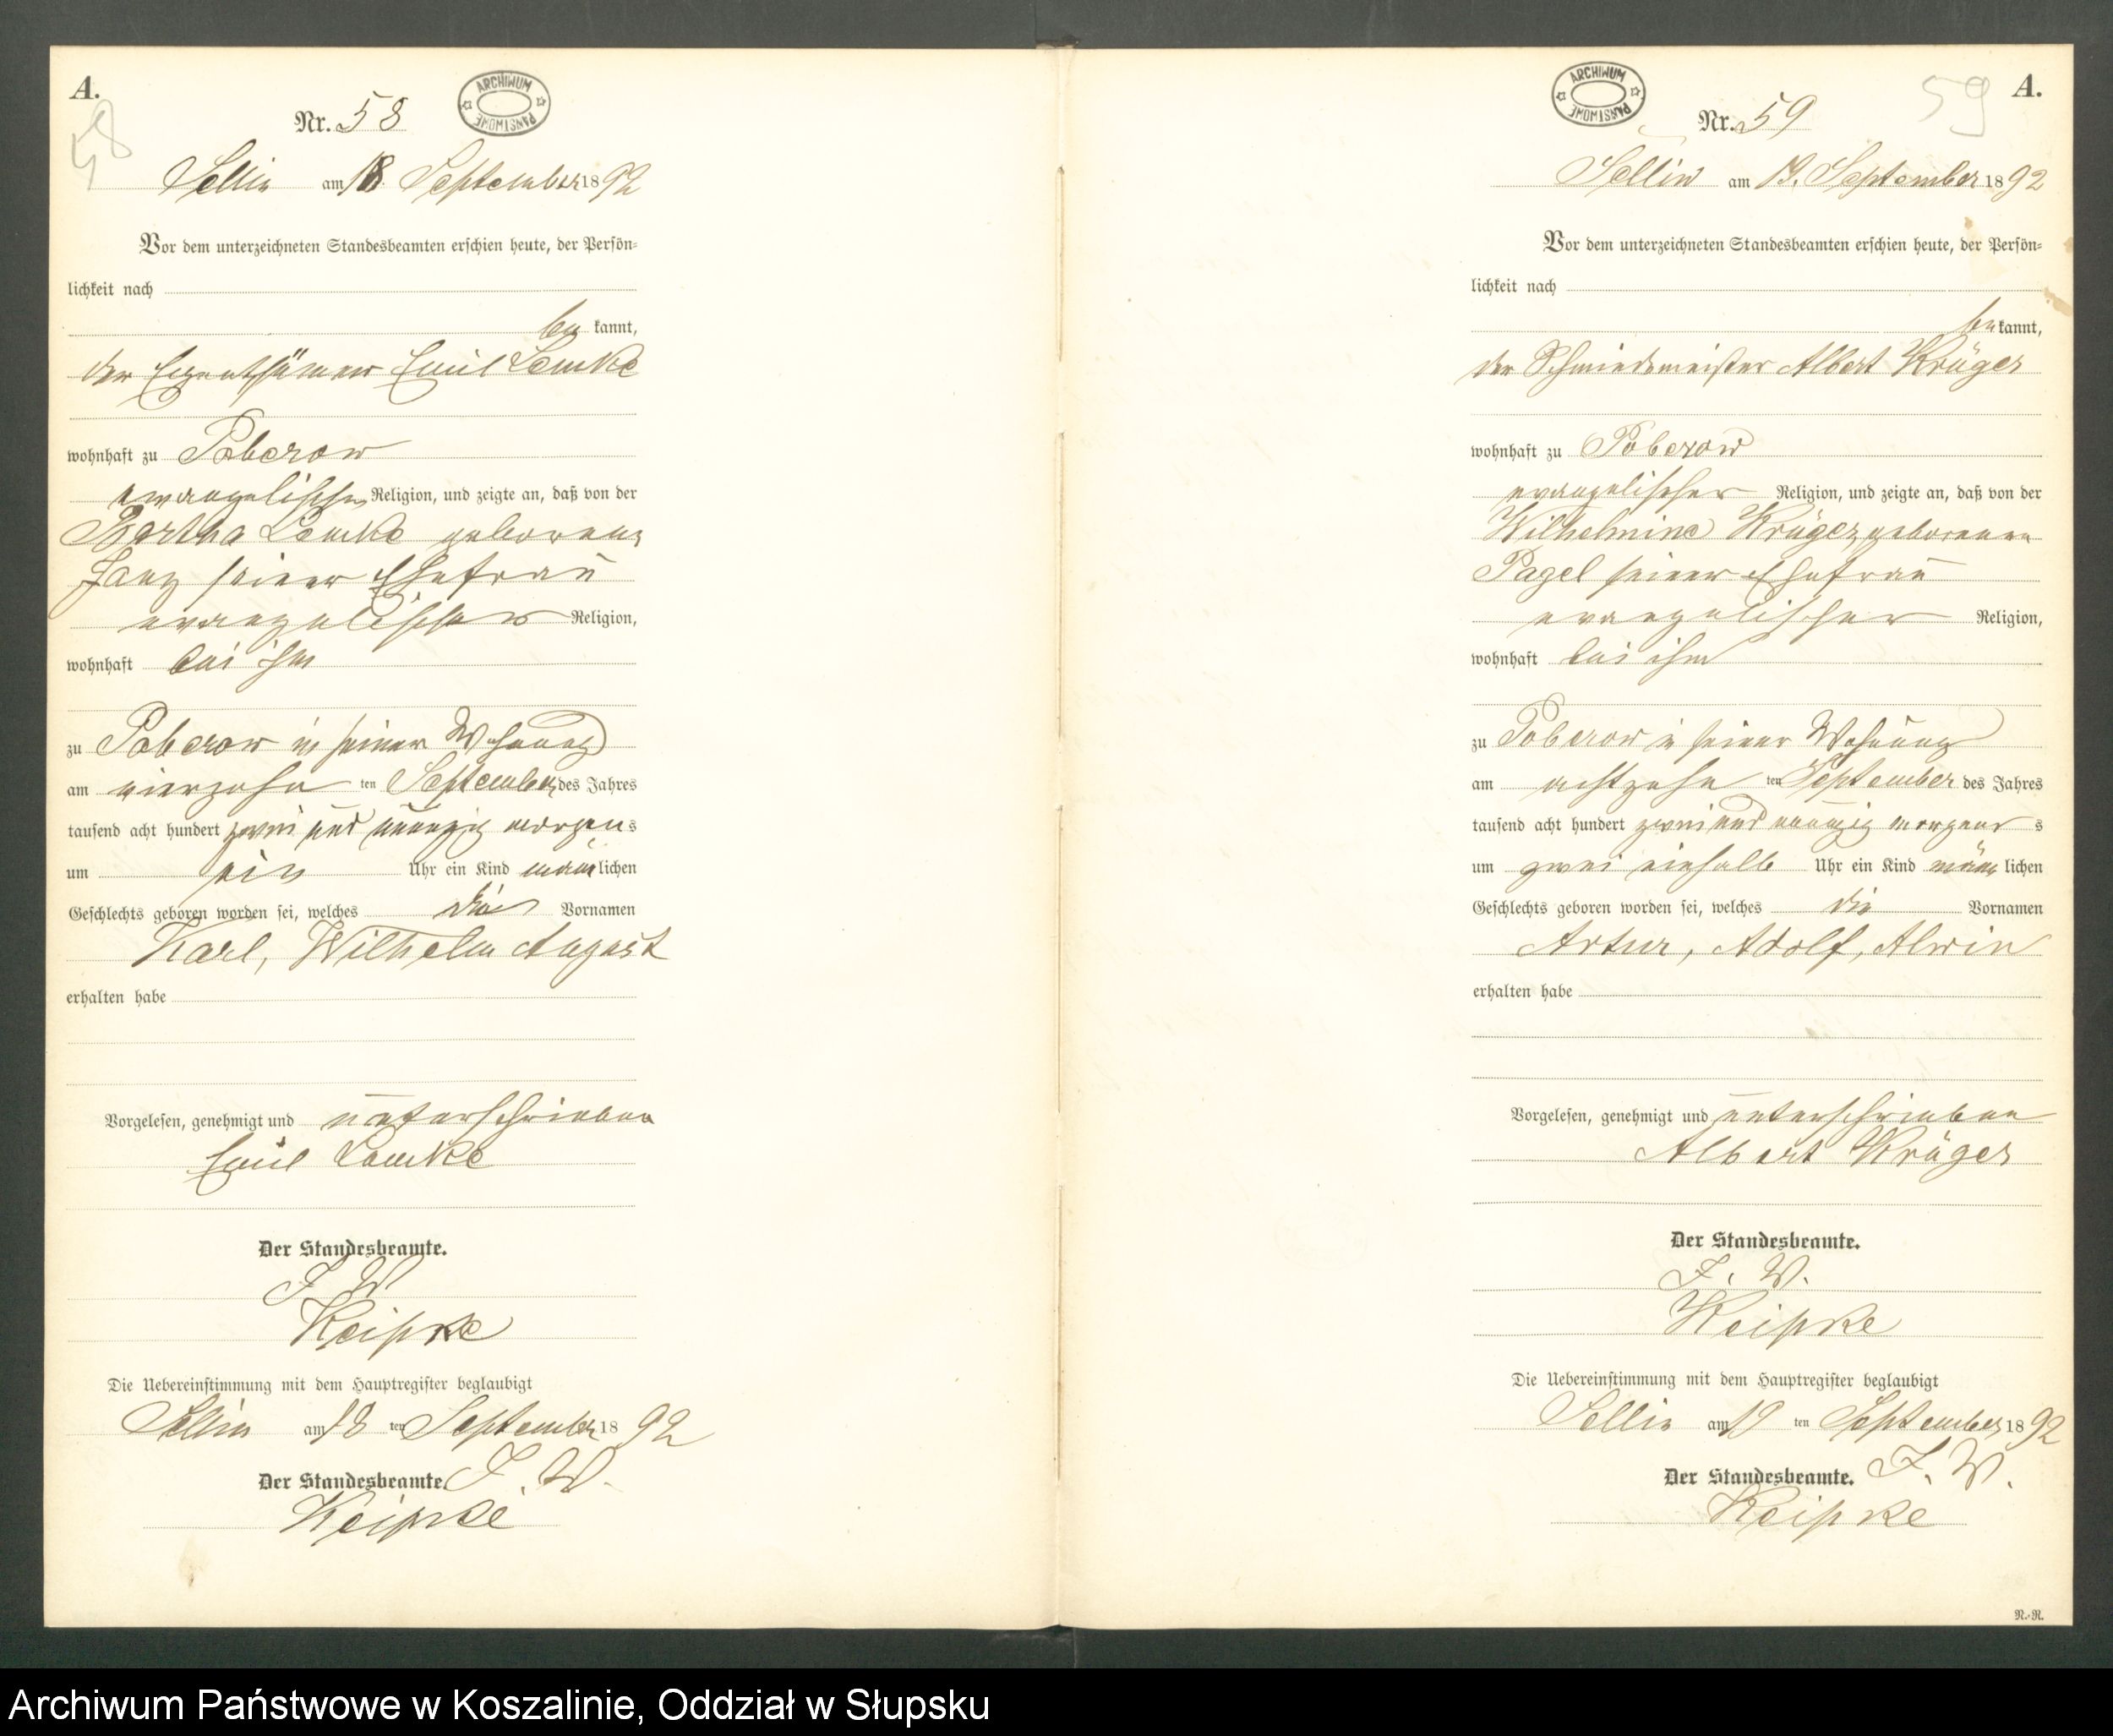 A.
58
Nr. 58
ARCHIWUM PAŃSTWOWE
Sellin am 18. September 1892
Vor dem unterzeichneten Standesbeamten erschien heute, der Persön-
lichkeit nach
be kannt,
der Eigenthümer Emil Lemke
wohnhaft zu Poberow
evangelischer Religion, und zeigte an, daß von der
Bertha Lemke geborene
seiner Ehefrau
evangelischer Religion,
wohnhaft bei ihm
zu Poberow in seiner Wohnung
am vierzehn ten September des Jahres
tausend acht hundert zwei und neunzig morgens
um ein Uhr ein Kind männlichen
Geschlechts geboren worden sei, welches die Vornamen
Karl, Wilhelm August
erhalten habe
Vorgelesen, genehmigt und unterschrieben
Emil Lemke
Der Standesbeamte.
J. W.
Keipke
Die Uebereinstimmung mit dem Hauptregister beglaubigt
Sellin am 18 ten September 1892
Der Standesbeamte. J. W.
Keipke
ARCHIWUM PAŃSTWOWE
59
A.
Nr. 59
Sellin am 19. September 1892
Vor dem unterzeichneten Standesbeamten erschien heute, der Persön-
lichkeit nach
be kannt,
der Schmiedemeister Albert Krüger
wohnhaft zu Poberow
evangelischer Religion, und zeigte an, daß von der
Wilhelmine Krüger, geborenen
Pagel seiner Ehefrau
evangelischer Religion,
wohnhaft bei ihm
zu Poberow in seiner Wohnung
am achtzehn ten September des Jahres
tausend acht hundert zwei und neunzig morgens
um zwei einhalb Uhr ein Kind männlichen
Geschlechts geboren worden sei, welches die Vornamen
Artur, Adolf, Alwin
erhalten habe
Vorgelesen, genehmigt und unterschrieben
Albert Krüger
Der Standesbeamte.
J. W.
Keipke
Die Uebereinstimmung mit dem Hauptregister beglaubigt
Sellin am 19 ten September 1892
Der Standesbeamte. J. W.
Keipke
N.-R.
Archiwum Państwowe w Koszalinie, Oddział w Słupsku